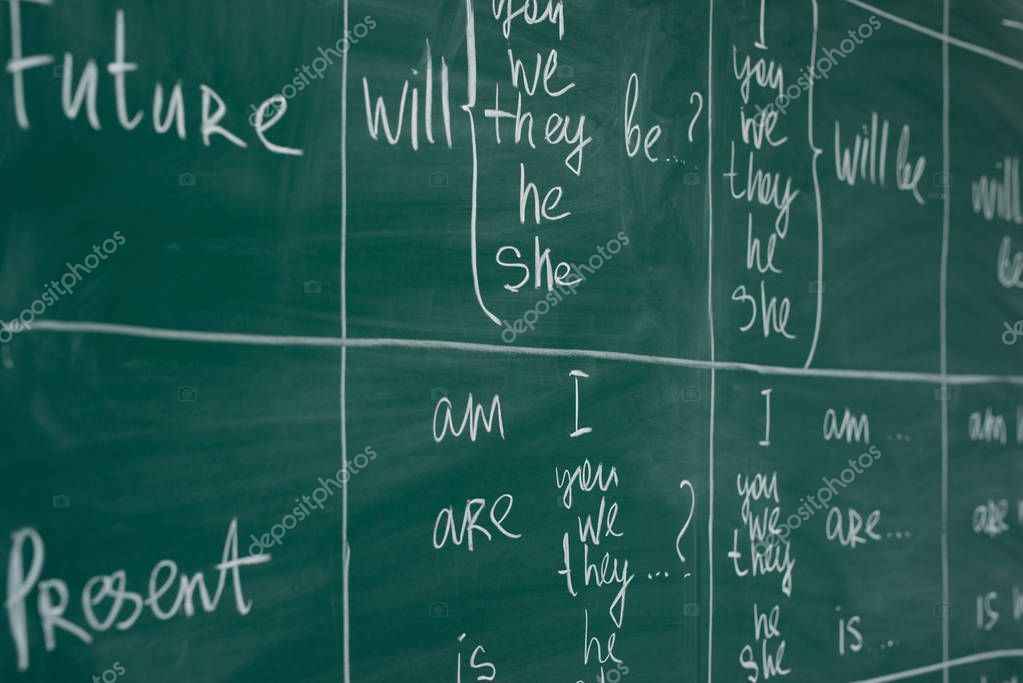 Future
will
you
we
they
he
she
be...?
I
you
we
they
he
she
will be...
will
be
Present
am I
are
you
we
they...?
is
he
I am ...
you
we
they
are...
he
she
is...
am
are
is
depositphotos
depositphotos
depositphotos
depositphotos
depositphotos
depositphotos
depositphotos